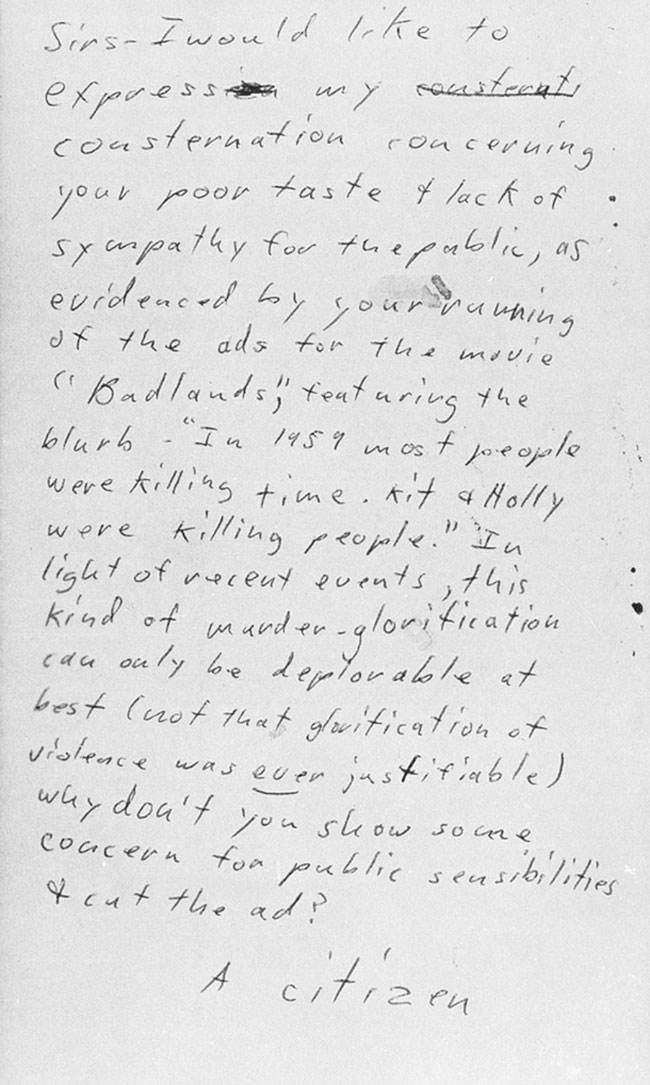 Sirs- I would like to
express my consternat
consternation concerning
your poor taste & lack of
sympathy for the public, as
evidenced by your running
of the ads for the movie
"Badlands", featuring the
blurb - "In 1959 most people
were killing time. Kit & Holly
were killing people." In
light of recent events, this
kind of murder-glorification
can only be deplorable at
best (not that glorification of
violence was ever justifiable)
why don't you show some
concern for public sensibilities
& cut the ad?
A citizen